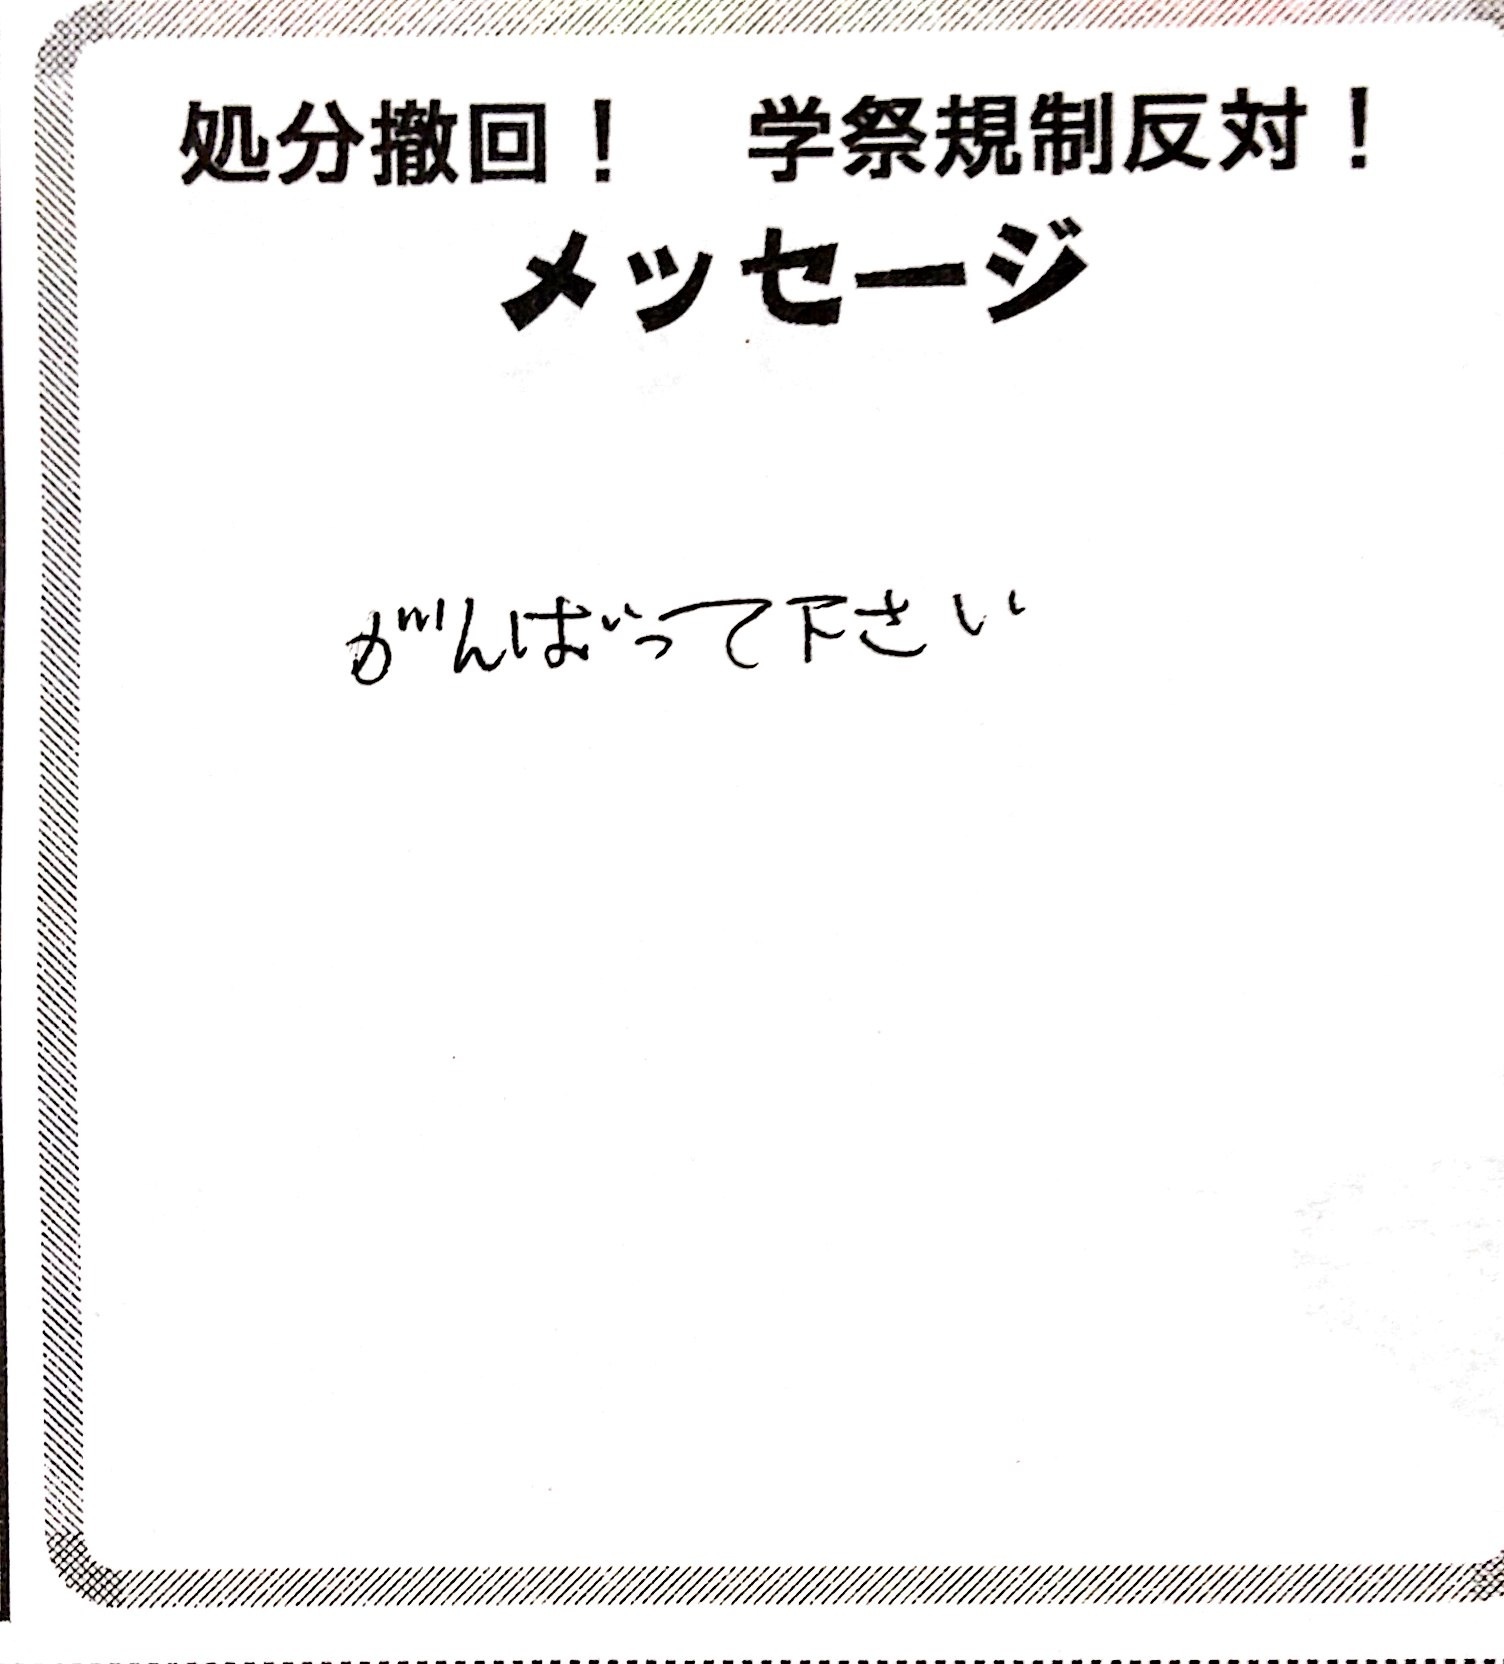 処分撤回！　学祭規制反対！
メッセージ
がんばって下さい